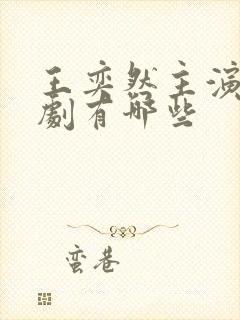 王奕然主演
劇有哪些
蛮巷